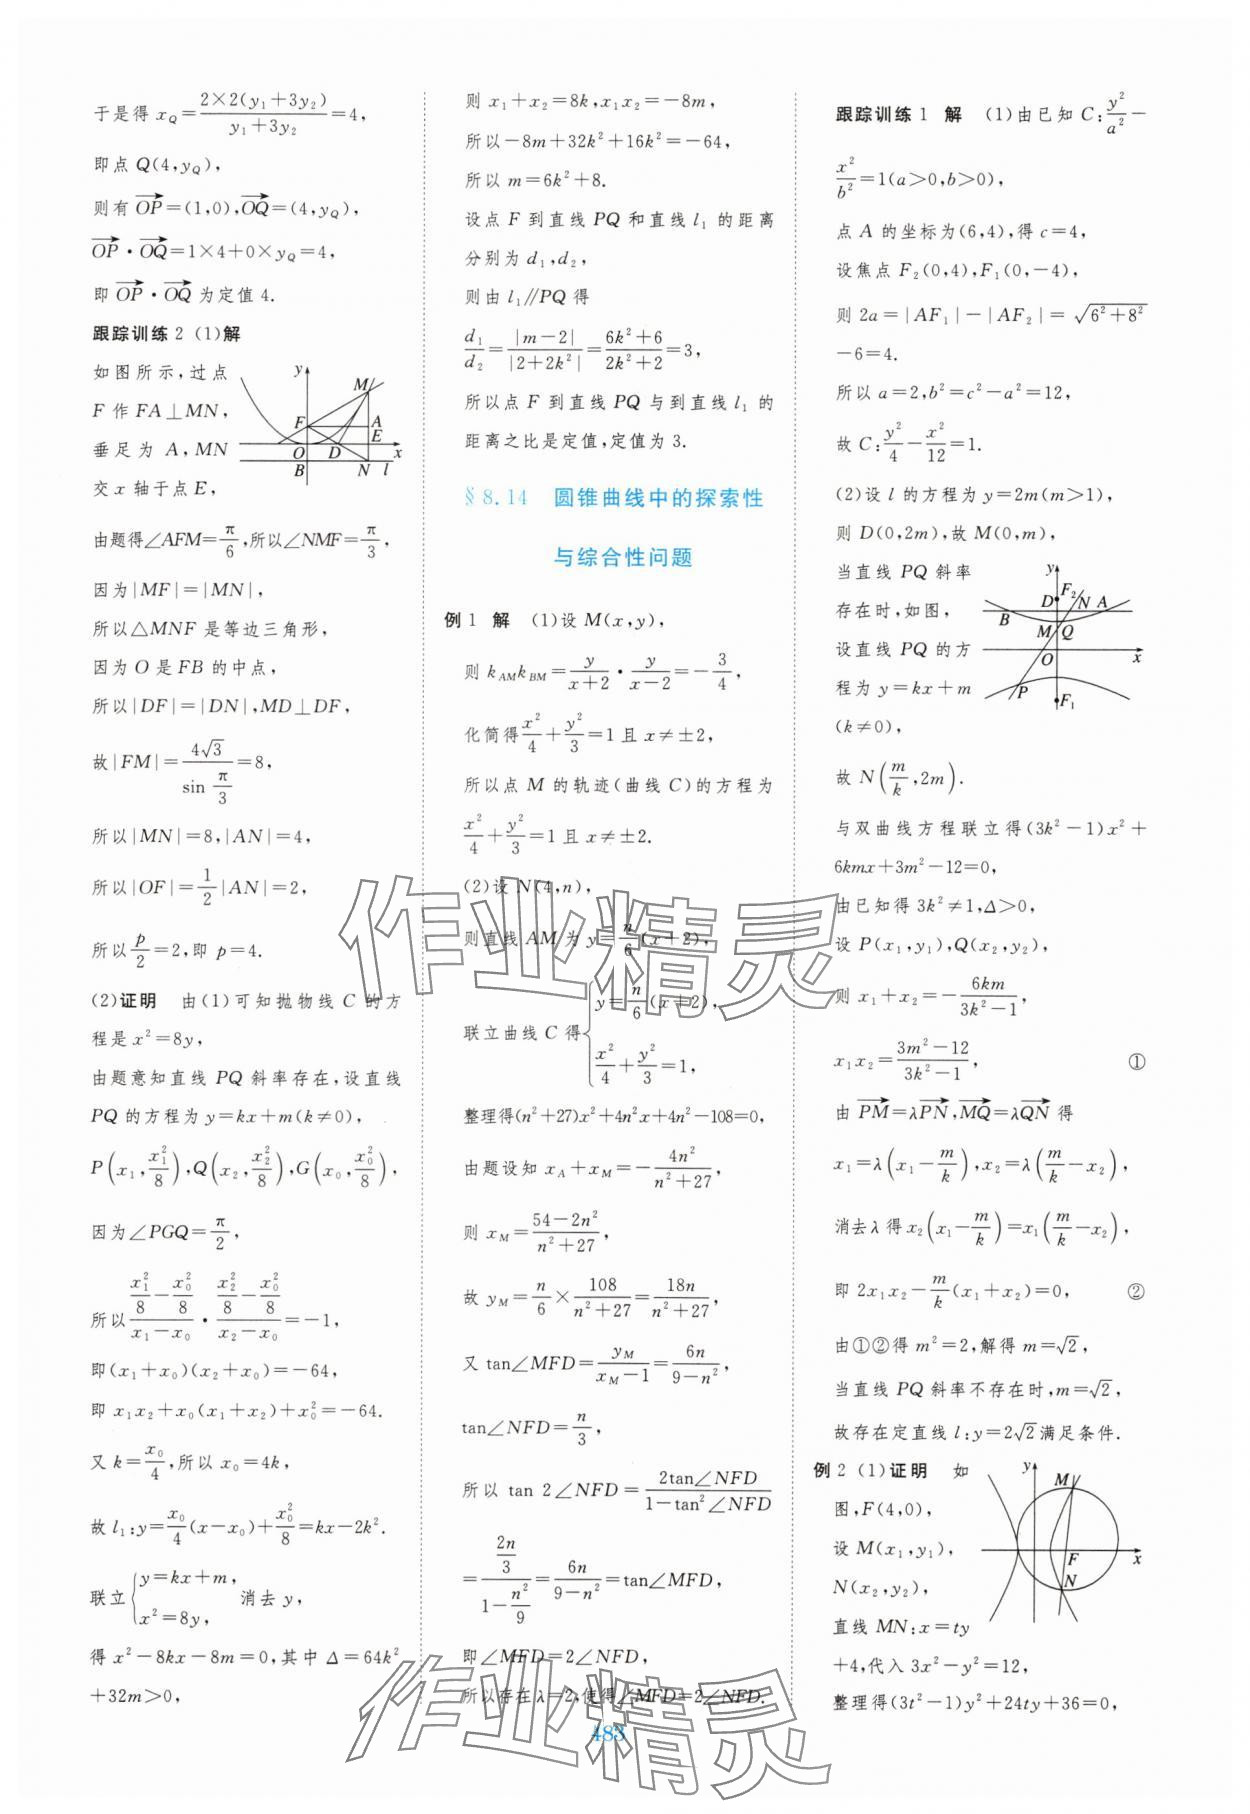 于是得 x_Q=\frac{2×2(y₁+3y₂)}{y₁+3y₂}=4,
即点 Q(4,y_Q),
则有 \overrightarrow{OP}=(1,0),\overrightarrow{OQ}=(4,y_Q),
\overrightarrow{OP}·\overrightarrow{OQ}=1×4+0×y_Q=4,
即 \overrightarrow{OP}·\overrightarrow{OQ} 为定值 4.
跟踪训练 2 (1)解
如图所示,过点
F 作 FA⊥MN,
垂足为 A,MN
交 x 轴于点 E,
y
M
F
A
E
O
D
x
B
N
l
由题得∠AFM=\frac{π}{6},所以∠NMF=\frac{π}{3},
因为|MF|=|MN|,
所以△MNF 是等边三角形,
因为 O 是 FB 的中点,
所以|DF|=|DN|,MD⊥DF,
故|FM|=\frac{4√3}{sin \frac{π}{3}}=8,
所以|MN|=8,|AN|=4,
所以|OF|=\frac{1}{2}|AN|=2,
所以\frac{p}{2}=2,即 p=4.
(2)证明 由(1)可知抛物线 C 的方
程是 x²=8y,
由题意知直线 PQ 斜率存在,设直线
PQ 的方程为 y=kx+m(k≠0),
P(x₁,\frac{x₁²}{8}),Q(x₂,\frac{x₂²}{8}),G(x₀,\frac{x₀²}{8}),
因为∠PGQ=\frac{π}{2},
所以\frac{\frac{x₁²}{8}-\frac{x₀²}{8}}{x₁-x₀}·\frac{\frac{x₂²}{8}-\frac{x₀²}{8}}{x₂-x₀}=-1,
即(x₁+x₀)(x₂+x₀)=-64,
即 x₁x₂+x₀(x₁+x₂)+x₀²=-64.
又 k=\frac{x₀}{4},所以 x₀=4k,
故 l₁:y=\frac{x₀}{4}(x-x₀)+\frac{x₀²}{8}=kx-2k².
联立{y=kx+m, x²=8y, 消去 y,
得 x²-8kx-8m=0,其中 Δ=64k²
+32m>0,
则 x₁+x₂=8k,x₁x₂=-8m,
所以-8m+32k²+16k²=-64,
所以 m=6k²+8.
设点 F 到直线 PQ 和直线 l₁ 的距离
分别为 d₁,d₂,
则由 l₁∥PQ 得
\frac{d₁}{d₂}=\frac{|m-2|}{|2+2k²|}=\frac{6k²+6}{2k²+2}=3,
所以点 F 到直线 PQ 与到直线 l₁ 的
距离之比是定值,定值为 3.
§8.14 圆锥曲线中的探索性
与综合性问题
例 1 解 (1)设 M(x,y),
则 k_{AM}k_{BM}=\frac{y}{x+2}·\frac{y}{x-2}=-\frac{3}{4},
化简得\frac{x²}{4}+\frac{y²}{3}=1 且 x≠±2,
所以点 M 的轨迹(曲线 C)的方程为
\frac{x²}{4}+\frac{y²}{3}=1 且 x≠±2.
(2)设 N(4,n),
则直线 AM 为 y=\frac{n}{6}(x+2),
联立曲线 C 得{y=\frac{n}{6}(x+2), \frac{x²}{4}+\frac{y²}{3}=1,
整理得(n²+27)x²+4n²x+4n²-108=0,
由题设知 x_A+x_M=-\frac{4n²}{n²+27},
则 x_M=\frac{54-2n²}{n²+27},
故 y_M=\frac{n}{6}×\frac{108}{n²+27}=\frac{18n}{n²+27},
又 tan∠MFD=\frac{y_M}{x_M-1}=\frac{6n}{9-n²},
tan∠NFD=\frac{n}{3},
所以 tan 2∠NFD=\frac{2tan∠NFD}{1-tan²∠NFD}
=\frac{\frac{2n}{3}}{1-\frac{n²}{9}}=\frac{6n}{9-n²}=tan∠MFD,
即∠MFD=2∠NFD,
所以存在 λ=2,使得∠MFD=2∠NFD.
跟踪训练 1 解 (1)由已知 C:\frac{y²}{a²}-
\frac{x²}{b²}=1(a>0,b>0),
点 A 的坐标为(6,4),得 c=4,
设焦点 F₂(0,4),F₁(0,-4),
则 2a=|AF₁|-|AF₂|=\sqrt{6²+8²}
-6=4.
所以 a=2,b²=c²-a²=12,
故 C:\frac{y²}{4}-\frac{x²}{12}=1.
(2)设 l 的方程为 y=2m(m>1),
则 D(0,2m),故 M(0,m),
当直线 PQ 斜率
存在时,如图,
设直线 PQ 的方
程为 y=kx+m
(k≠0),
y
F₂
D
N
A
B
M
Q
O
x
P
F₁
故 N(\frac{m}{k},2m).
与双曲线方程联立得(3k²-1)x²+
6kmx+3m²-12=0,
由已知得 3k²≠1,Δ>0,
设 P(x₁,y₁),Q(x₂,y₂),
则 x₁+x₂=-\frac{6km}{3k²-1},
x₁x₂=\frac{3m²-12}{3k²-1}, ①
由 \overrightarrow{PM}=λ\overrightarrow{PN},\overrightarrow{MQ}=λ\overrightarrow{QN} 得
x₁=λ(x₁-\frac{m}{k}),x₂=λ(\frac{m}{k}-x₂),
消去 λ 得 x₂(x₁-\frac{m}{k})=x₁(\frac{m}{k}-x₂),
即 2x₁x₂-\frac{m}{k}(x₁+x₂)=0, ②
由①②得 m²=2,解得 m=√2,
当直线 PQ 斜率不存在时,m=√2,
故存在定直线 l:y=2√2满足条件.
例 2 (1)证明 如
图,F(4,0),
设 M(x₁,y₁),
N(x₂,y₂),
直线 MN:x=ty
+4,代入 3x²-y²=12,
整理得(3t²-1)y²+24ty+36=0,
y
M
F
x
N
483
作业精灵
作业精灵